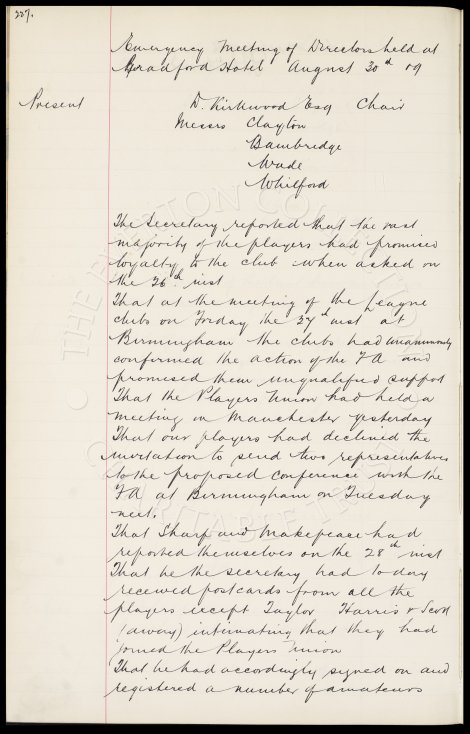 227.
Emergency Meeting of Directors held at
Bradford Hotel August 30th 09
Present D. Kirkwood Esq Chair
Messrs Clayton
Bambridge
Wade
Whilford
The Secretary reported that the vast
majority of the players had promised
loyalty to the club when asked on
the 26th inst
That at the meeting of the League
clubs on Friday the 27th inst at
Birmingham the clubs had unanimously
confirmed the action of the FA and
promised them unqualified support
That the Players Union had held a
meeting in Manchester yesterday
That our players had declined the
invitation to send two representatives
to the proposed conference with the
FA at Birmingham on Tuesday
next.
That Sharp and Makepeace had
reported themselves on the 28th inst
That he the secretary had to day
received postcards from all the
players except Taylor Harris & Scott
(away) intimating that they had
joined the Players Union
That he had accordingly signed on and
registered a number of amateurs
THE EVERTON COLLECTION
CHARITABLE TRUST